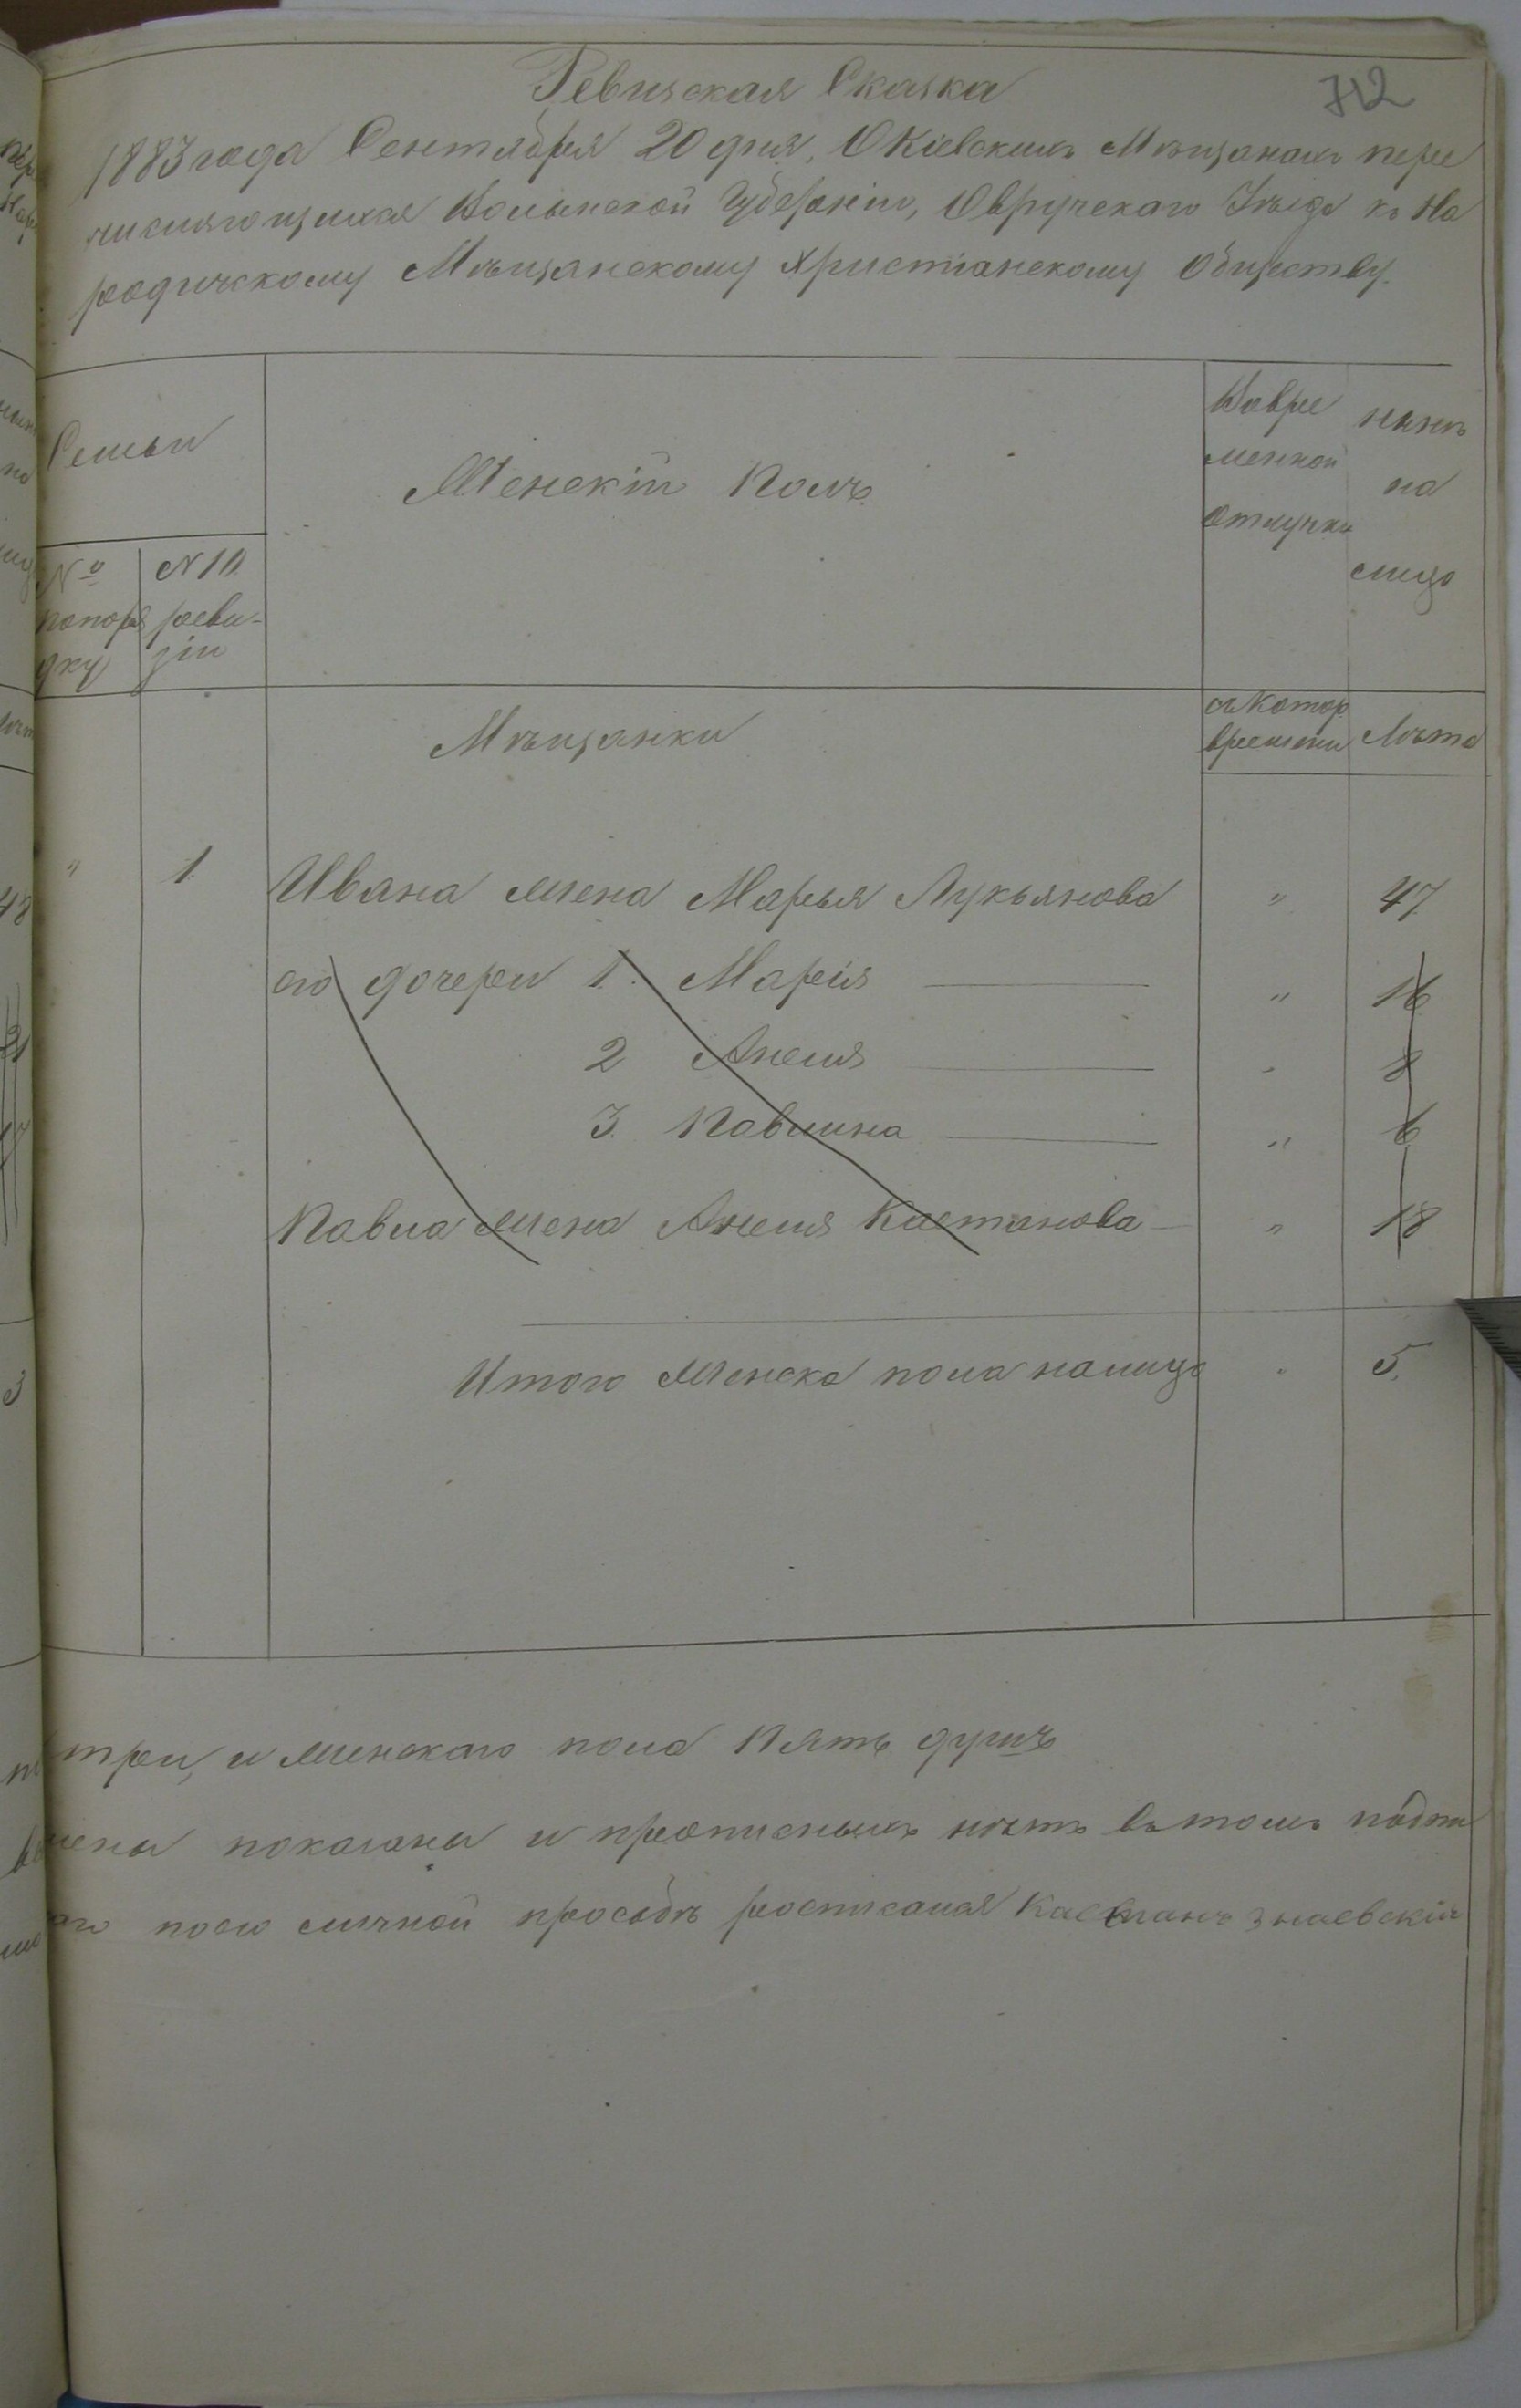 712
Ревизская Сказка
1883 года Сентября 20 дня, О Кіевскихъ Мѣщанахъ пере
числяющихся Волынской Губерніи, Овручскаго Уѣзда къ На
родичскому Мѣщанскому Христіанскому Обществу.
Семьи
Женскій Полъ
Вовре
менной
отлучки
нынѣ
на
лицо
№ попоря
дку
№ 10 реви-
зіи
Мѣщанки
съ котор
времени
Лѣта
" 1. Ивана жена Марья Лукьянова " 47.
его дочери 1. Марія " 16
2 Анеля " 8
3. Павлина " 6
Павла жена Анеля Каетанова " 18
Итого Женска пола налицо 5.
три, и женскаго пола Пять душъ
мены показаны и прописныхъ нѣтъ въ томъ подпи
его личной прозьбѣ росписался Каетанъ